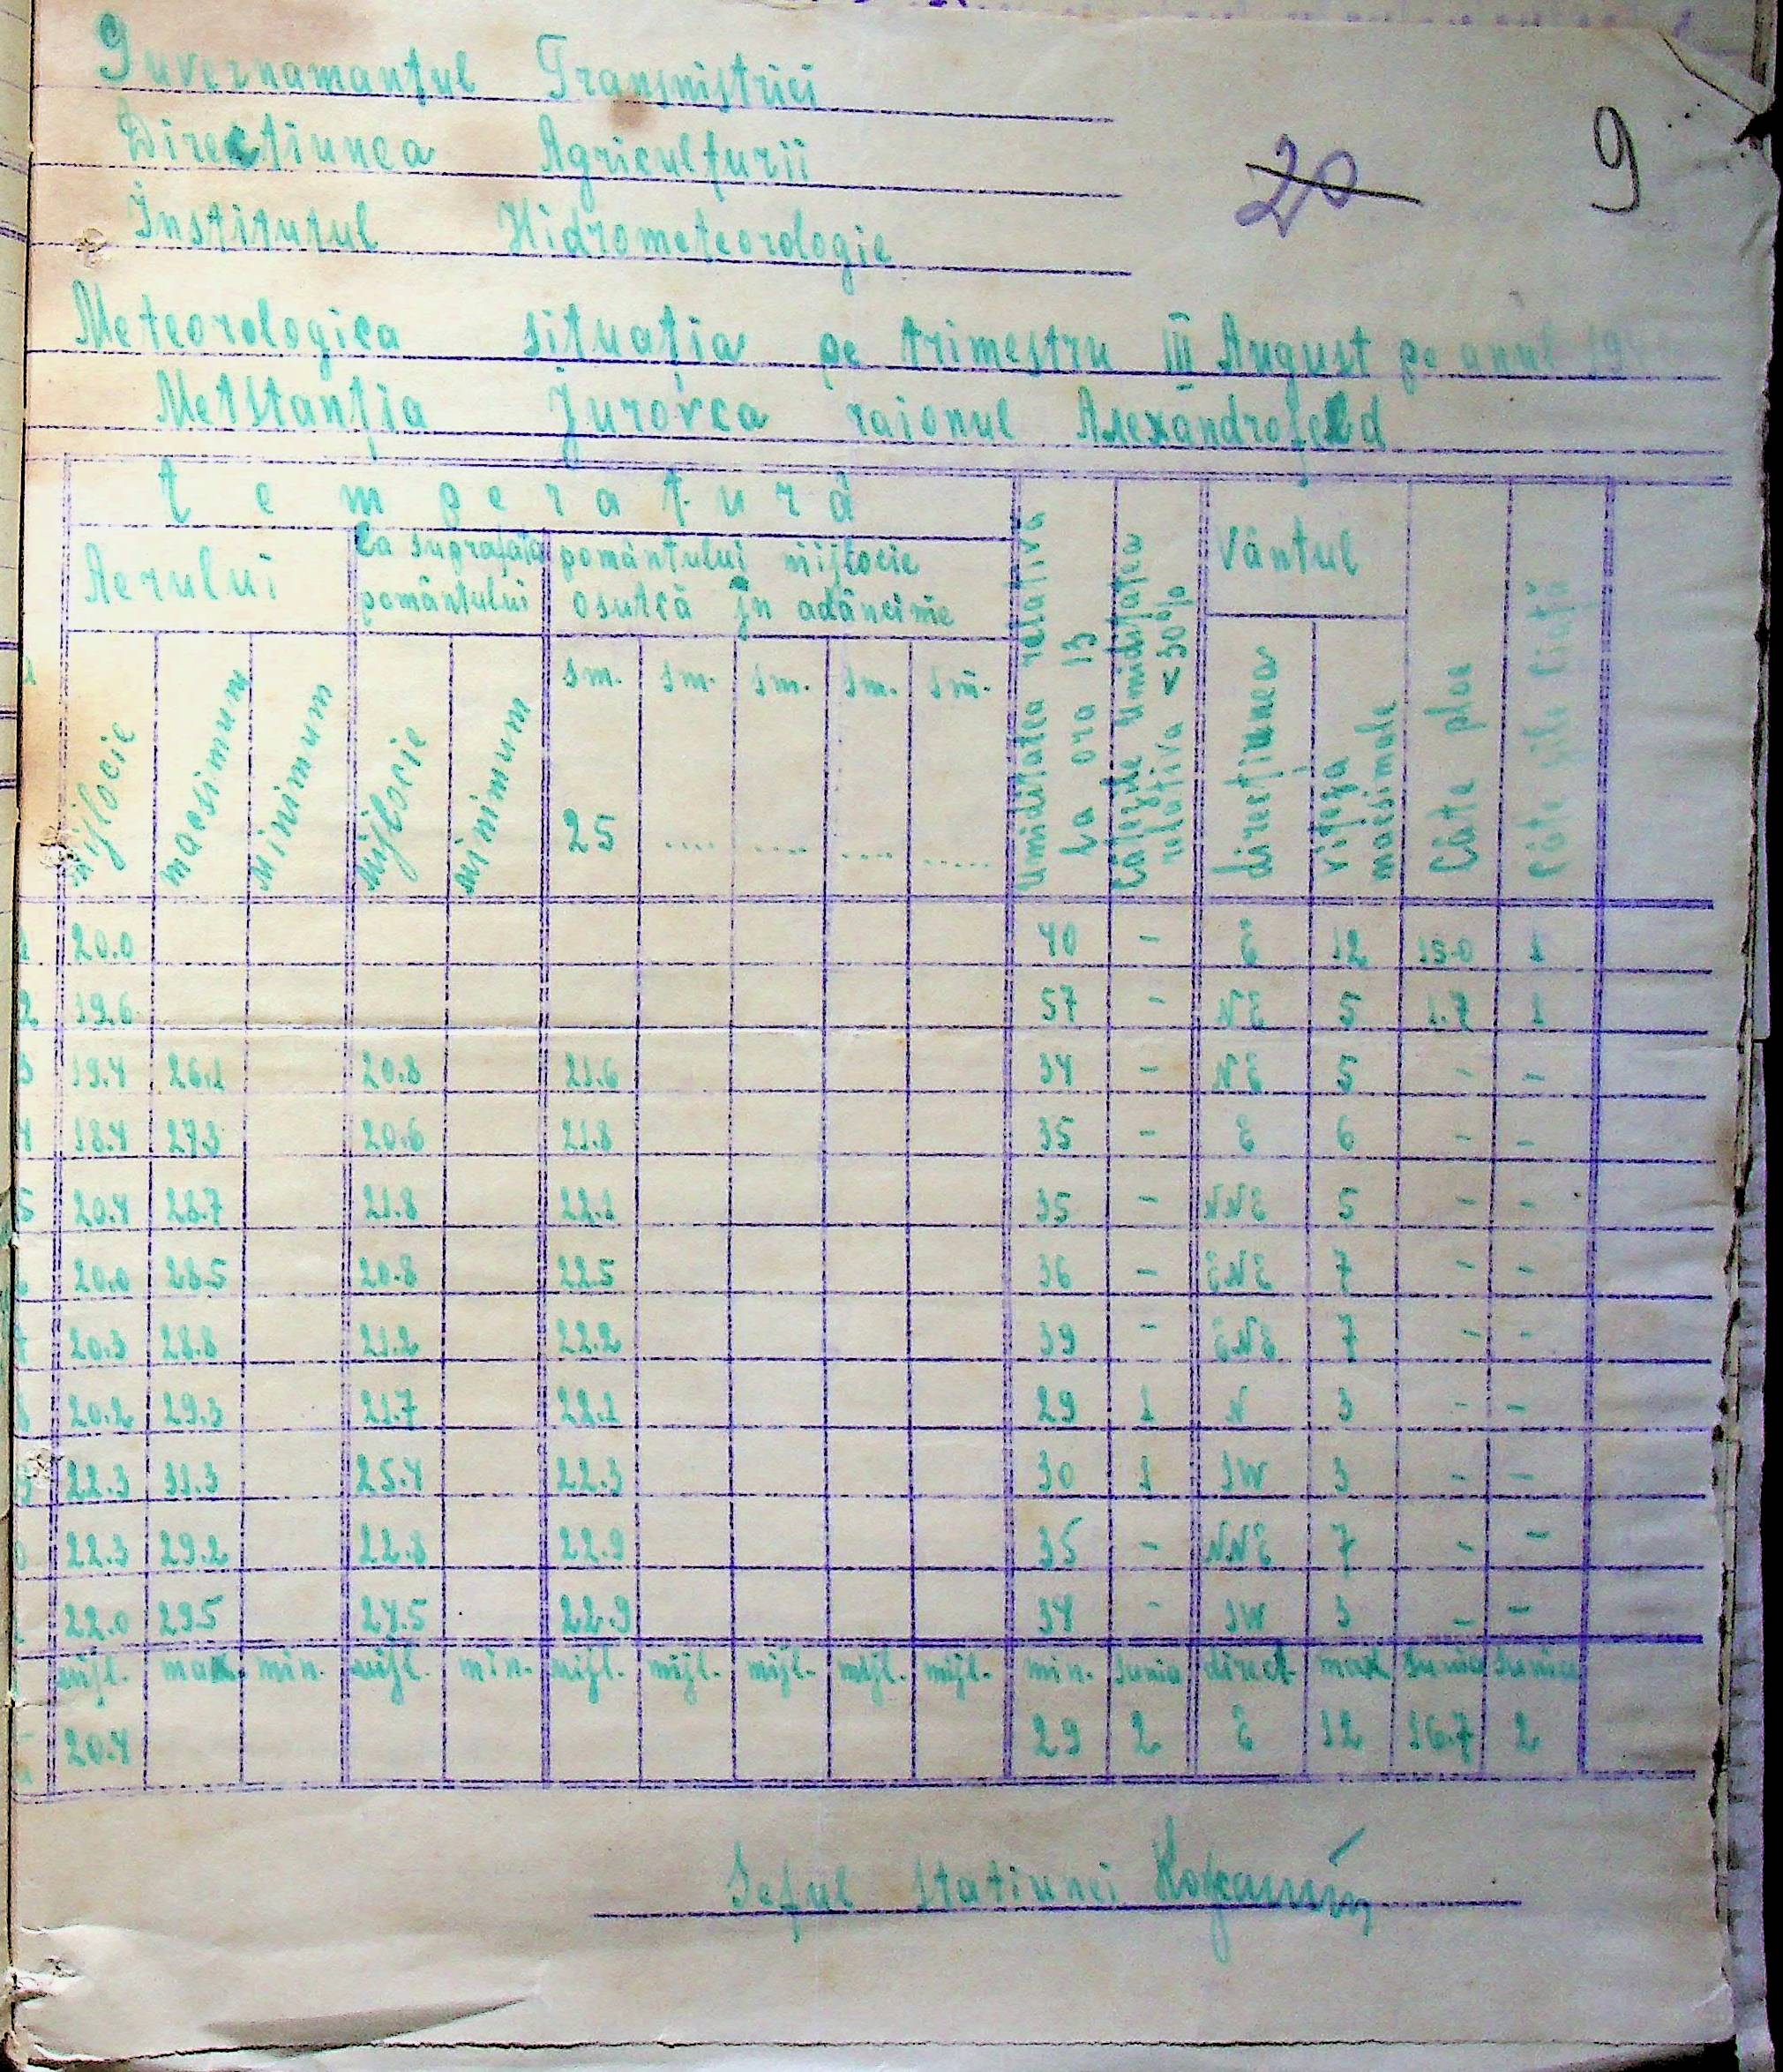 Guvernamantul Transnistriei
Direcțiunea Agriculturii
20 9
Institutul Hidrometeorologic
Meteorologica situația pe trimestru III August pe anul 194
Metstanția Jurovca raionul Alexandrofeld
temperatură
Aerului
La sugrafața pomântului
pomântului mijlocie osutcă în adâncime
Umiditatea relativă la ora 13
Câtezile umiditatea relativa <30%
Vântul
Câte ploe
Câte zile
mijlocie macsimum minimum mijlocie minimum
sm. sm. sm. sm. sm.
25 .... .... .... .....
direcțiunea viteza macsimale
20.0 40 - E 12 15.0 1
2 19.6 57 - NE 5 1.7 1
3 19.4 26.1 20.8 21.6 34 - NE 5 - -
4 18.4 27.3 20.6 21.8 35 - E 6 - -
5 20.4 28.7 21.8 22.1 35 - NNE 5 - -
20.0 28.5 20.8 22.5 36 - ENE 7 - -
20.3 28.8 21.2 22.2 39 - ENE 7 - -
20.2 29.3 21.7 22.1 29 1 N 3 - -
22.3 31.3 25.4 22.3 30 1 SW 3 - -
0 22.3 29.2 22.8 22.9 35 - NNE 7 - -
22.0 29.5 24.5 22.9 34 - SW 3 - -
mijl. max. min. mijl. min. mijl. mijl. mijl. mijl. mijl. min. suma direct max suma suma
20.4 29 2 E 12 16.7 2
Seful statiunei